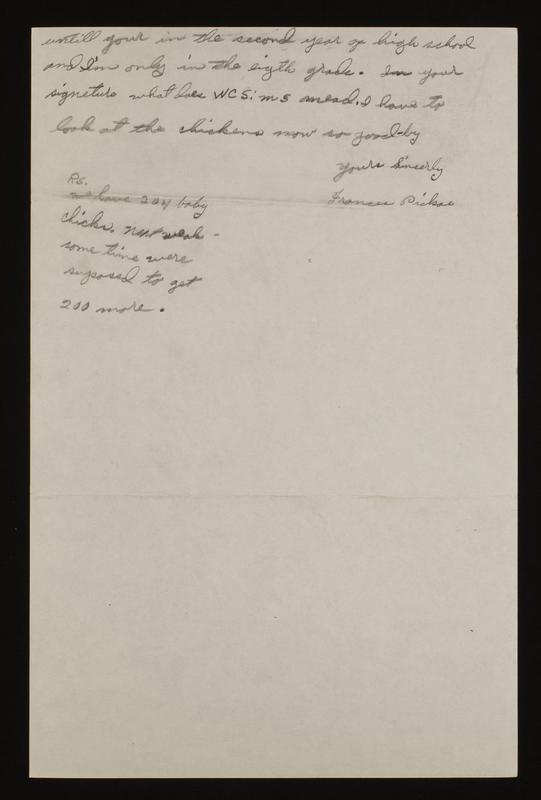 untill your in the second year of high school
and I'm only in the eigth grade. In your
signeture what does WCS: ms mead. I have to
look at the chickens now so good-by
Yours Sinserly
Frances
P.S.
we have 204 baby
chicks. Next weak
some time were
suposed to get
200 more.